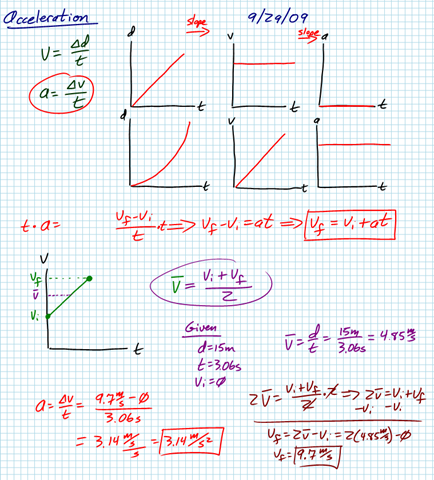 Acceleration 9/29/09
slope slope
d v a
V = Δd/t
a = Δv/t
t t t
d v a
t t t
t · a = (Vf - Vi)/t · t ⇒ Vf - Vi = at ⇒ Vf = Vi + at
V
Vf
V̄
Vi
t
V̄ = (Vi + Vf)/2
Given
d = 15m
t = 3.06s
Vi = ∅
V̄ = d/t = 15m/3.06s = 4.85 m/s
a = Δv/t = (9.7 m/s - ∅)/3.06s
= 3.14 m/s/s = 3.14 m/s²
2V̄ = (Vi + Vf)/2 · 2 ⇒ 2V̄ = Vi + Vf
-Vi -Vi
Vf = 2V̄ - Vi = 2(4.85 m/s) - ∅
Vf = 9.7 m/s